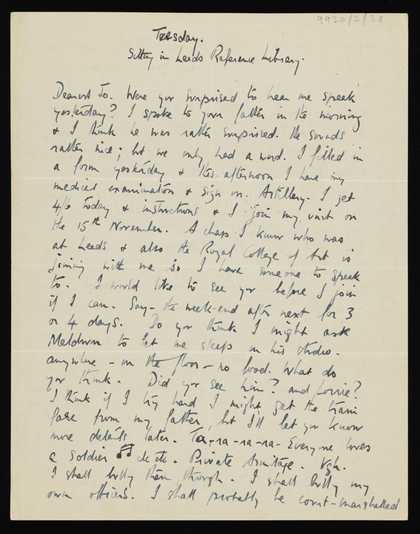 9920/2/28
Tuesday.
Sitting in Leeds Reference Library.
Dearest Jo. Were you surprised to hear me speak
yesterday? I spoke to your father in the morning
& I think he was rather surprised. He sounds
rather nice; but we only had a word. I filled in
a form yesterday & this afternoon I have my
medical examination & sign on. Artillery. I get
4/6 today & instructions & I join my unit on
the 15th November. A chap I know who was
at Leeds & also the Royal College of Art is
joining with me so I have someone to speak
to. I would like to see you before I join
if I can. Say - the week-end after next for 3
or 4 days. Do you think I might ask
Meldwin to let me sleep in his studio.
anywhere - on the floor - no food. What do
you think. Did you see him? and Lorrie?
I think if I try hard I might get the train
fare from my father but I'll let you know
more details later. Ta-ra-ra-ra- Everyone loves
a Soldier ♫ etc etc. Private Armitage. Ugh.
I shall bully them though. I shall bully my
own officers. I shall probably be court-marshalled